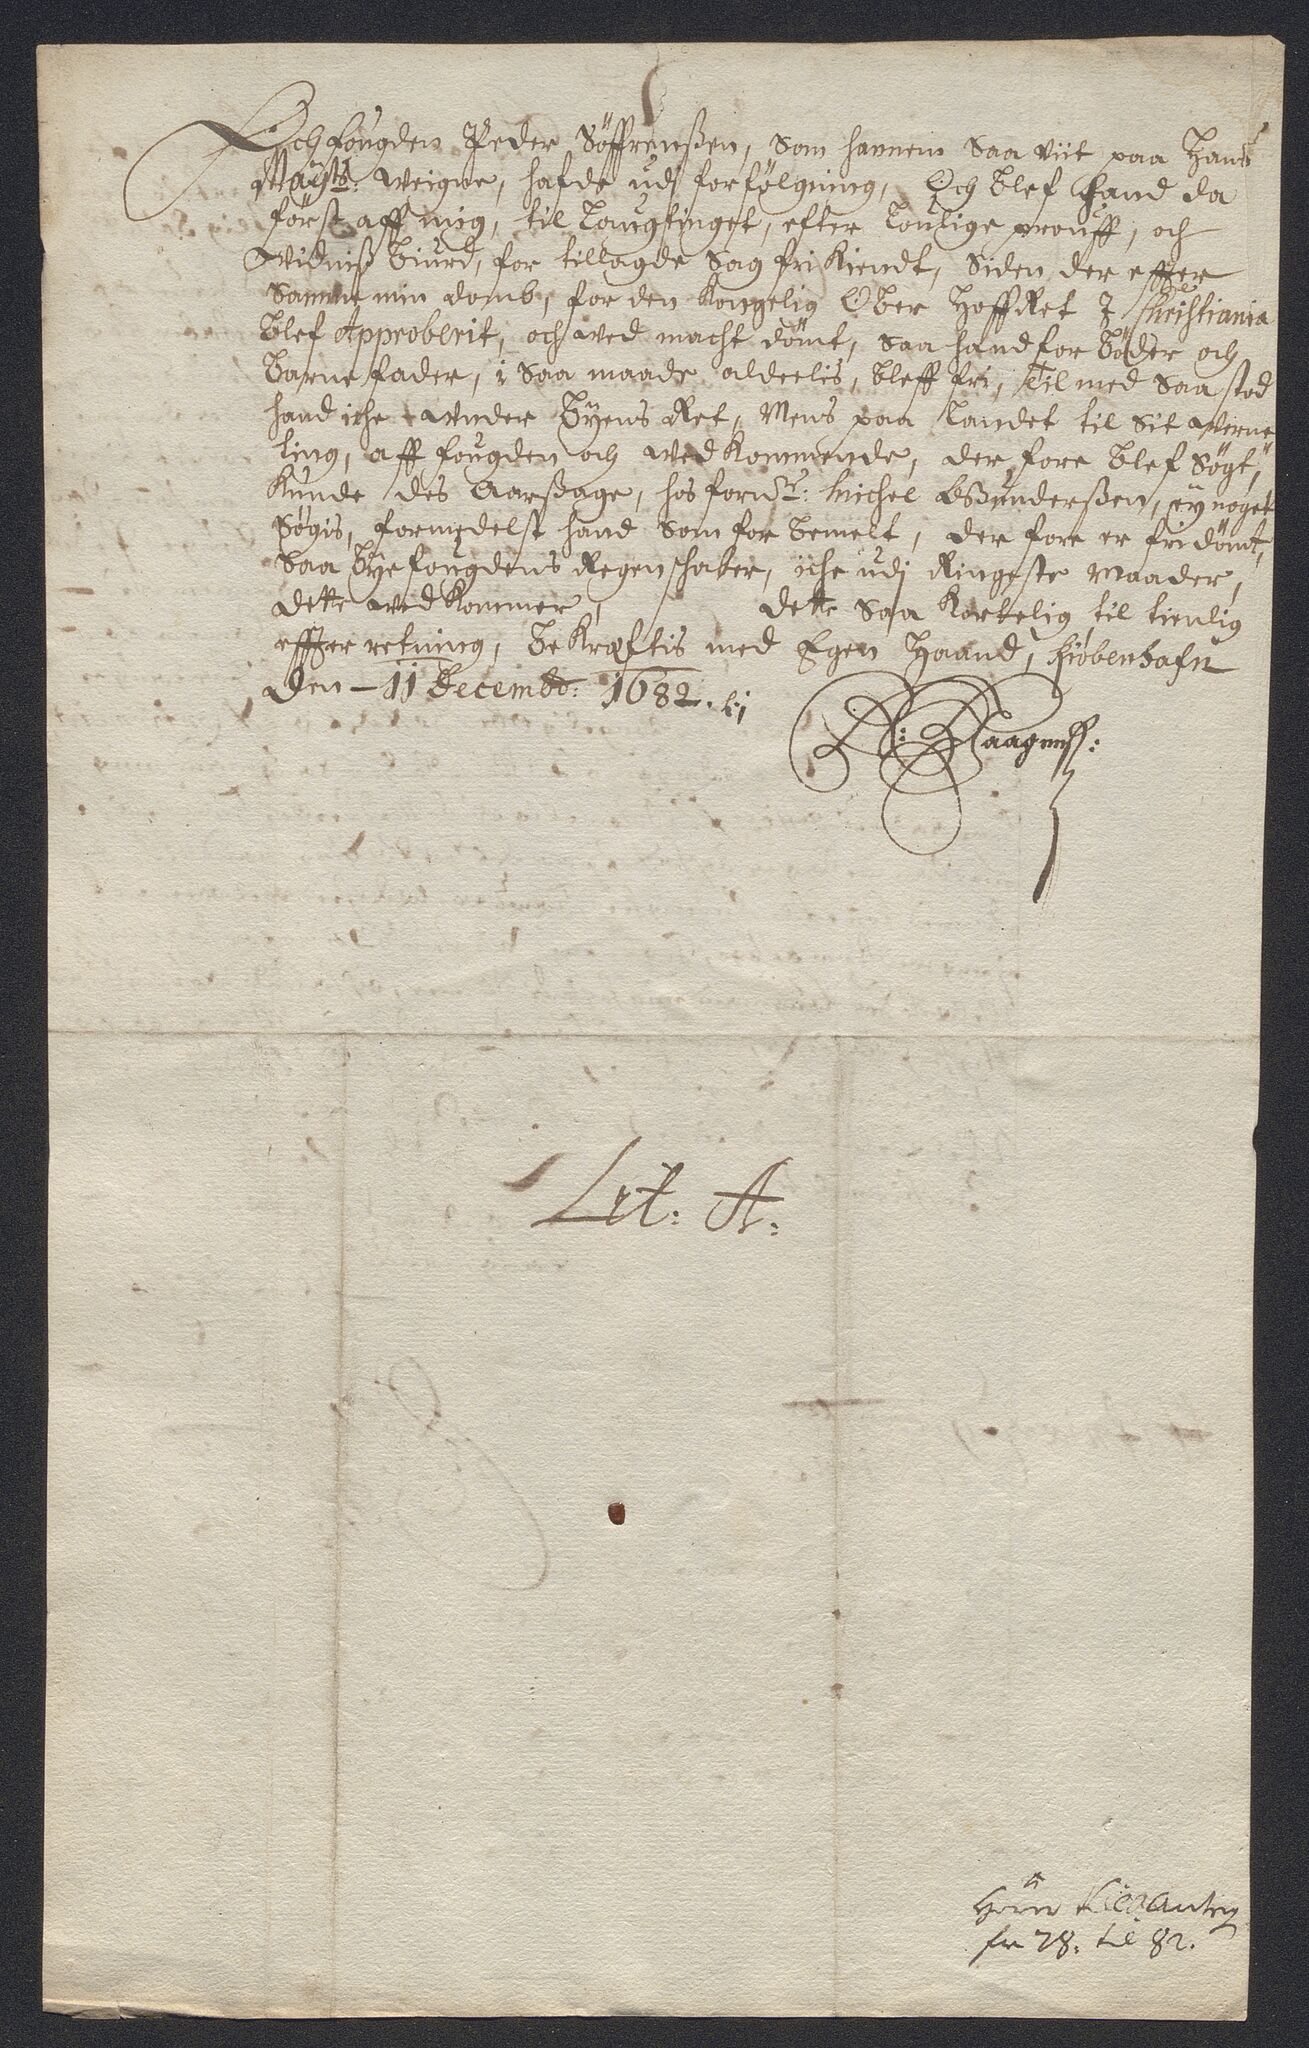 Och fougden Peder Söffrenßen, Som hannem Saa viit paa Hans
Maÿsts: Weigne, hafde udj forfølgning, Och blef hand da
først aff mig, til Laugtinget, efter Loulige prouff, och
Vidniß biurd, for tillagde Sag fri Kiendt, Siden der effter
Samme min domb, for den Kongelig Ober Hoff Ret I Christiania
blef Approberit, och wed macht dömt, Saa hand for bøder och
Barnefader, i Saa maade aldeelis, bleff fri, Til med Saa stod
hand iche under Byens Ret, Mens paa Landet til Sit Werne
ting, aff fougden och wed Kommende, der fore blef Søgt,
Kunde des Aarßage, hos fornd: Michel, eÿ noget
Søgis, formedelst hand Som for bemelt, der fore er fri dömt,
Saa Byefougdens Regenschaber, iche udj Ringeste Maader,
dette wed Kommer, dette Saa Kortelig til tienlig
effter retning, beKræftis med Egen Haand, Kiøbenhafn
Den 11 Decembr: 1682.
Lit: A:
fra 78. til 82.